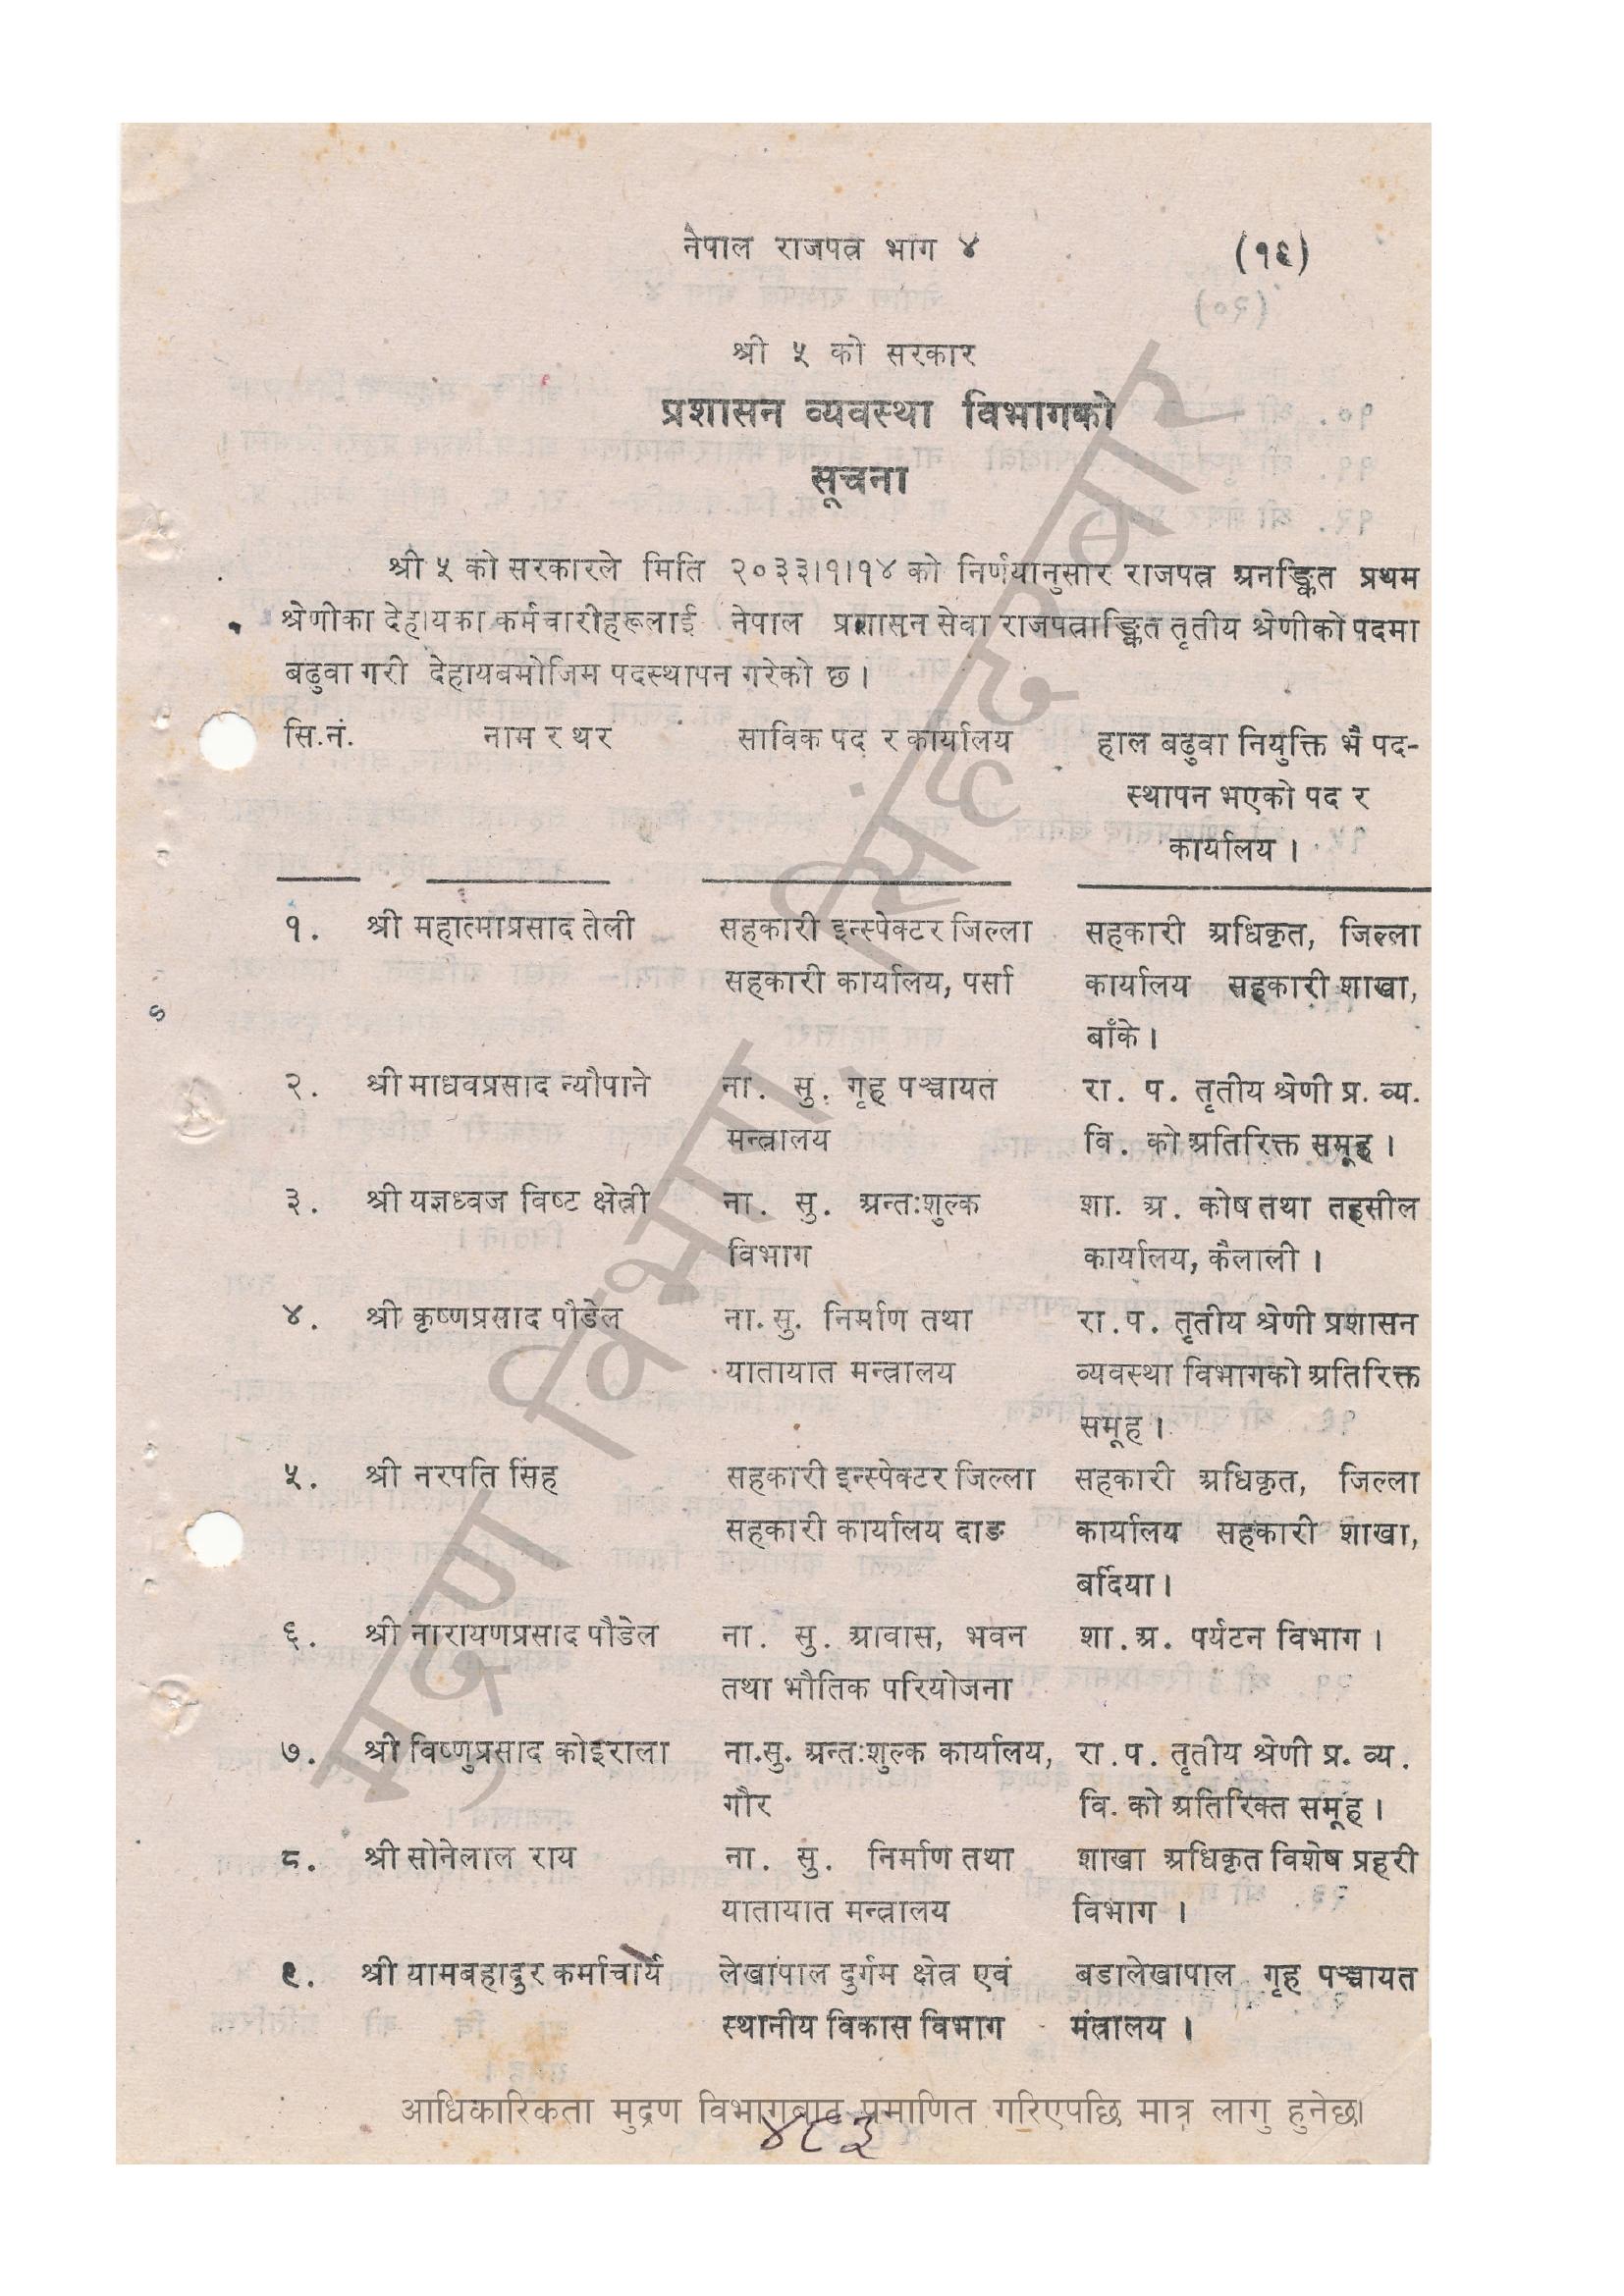 नेपाल राजपत्र भाग ४ (१६)
श्री ५ को सरकार
प्रशासन व्यवस्था विभागको
सूचना
श्री ५ को सरकारले मिति २०३३।१।१४ को निर्णयानुसार राजपत्र अनङ्कित प्रथम
श्रेणीका देहायका कर्मचारीहरूलाई नेपाल प्रशासन सेवा राजपत्राङ्कित तृतीय श्रेणीको पदमा
बढुवा गरी देहायबमोजिम पदस्थापन गरेको छ।
सि.नं. नाम र थर साविक पद र कार्यालय हाल बढुवा नियुक्ति भै पद-
स्थापन भएको पद र
कार्यालय।
१. श्री महात्माप्रसाद तेली सहकारी इन्स्पेक्टर जिल्ला सहकारी अधिकृत, जिल्ला
सहकारी कार्यालय, पर्सा कार्यालय सहकारी शाखा,
बाँके।
२. श्री माधवप्रसाद न्यौपाने ना. सु. गृह पञ्चायत रा. प. तृतीय श्रेणी प्र. व्य.
मन्त्रालय वि. को अतिरिक्त समूह।
३. श्री यज्ञध्वज विष्ट क्षेत्री ना. सु. अन्तःशुल्क शा. अ. कोष तथा तहसील
विभाग कार्यालय, कैलाली।
४. श्री कृष्णप्रसाद पौडेल ना. सु. निर्माण तथा रा.प. तृतीय श्रेणी प्रशासन
यातायात मन्त्रालय व्यवस्था विभागको अतिरिक्त
समूह।
५. श्री नरपति सिंह सहकारी इन्स्पेक्टर जिल्ला सहकारी अधिकृत, जिल्ला
सहकारी कार्यालय दाङ कार्यालय सहकारी शाखा,
बर्दिया।
६. श्री नारायणप्रसाद पौडेल ना. सु. आवास, भवन शा.अ. पर्यटन विभाग।
तथा भौतिक परियोजना
७. श्री विष्णुप्रसाद कोइराला ना.सु. अन्तःशुल्क कार्यालय, रा.प. तृतीय श्रेणी प्र. व्य.
गौर वि. को अतिरिक्त समूह।
८. श्री सोनेलाल राय ना. सु. निर्माण तथा शाखा अधिकृत विशेष प्रहरी
यातायात मन्त्रालय विभाग।
९. श्री यामबहादुर कर्माचार्य लेखापाल दुर्गम क्षेत्र एवं बडालेखापाल गृह पञ्चायत
स्थानीय विकास विभाग मंत्रालय।
मुद्रण विभाग, सिंहदरबार
आधिकारिकता मुद्रण विभागबाट प्रमाणित गरिएपछि मात्र लागु हुनेछ।
४८३